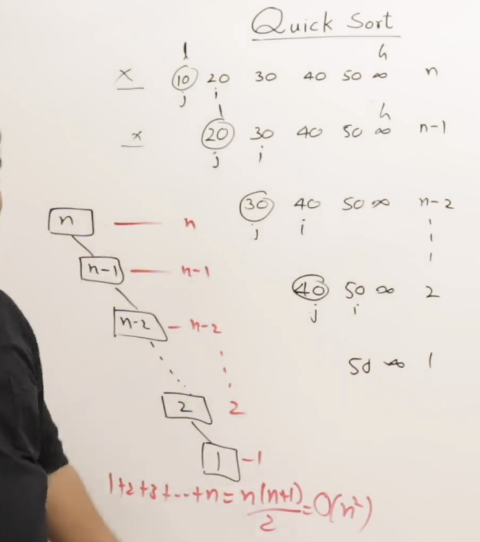 Quick Sort
l h
x 10 20 30 40 50 ∞ n
j i
l h
x 20 30 40 50 ∞ n-1
j i
30 40 50 ∞ n-2
j i
40 50 ∞ 2
j i
50 ∞ 1
n n
n-1 n-1
n-2 n-2
2 2
1 1
1+2+3+---+n = n(n+1)/2 = O(n²)